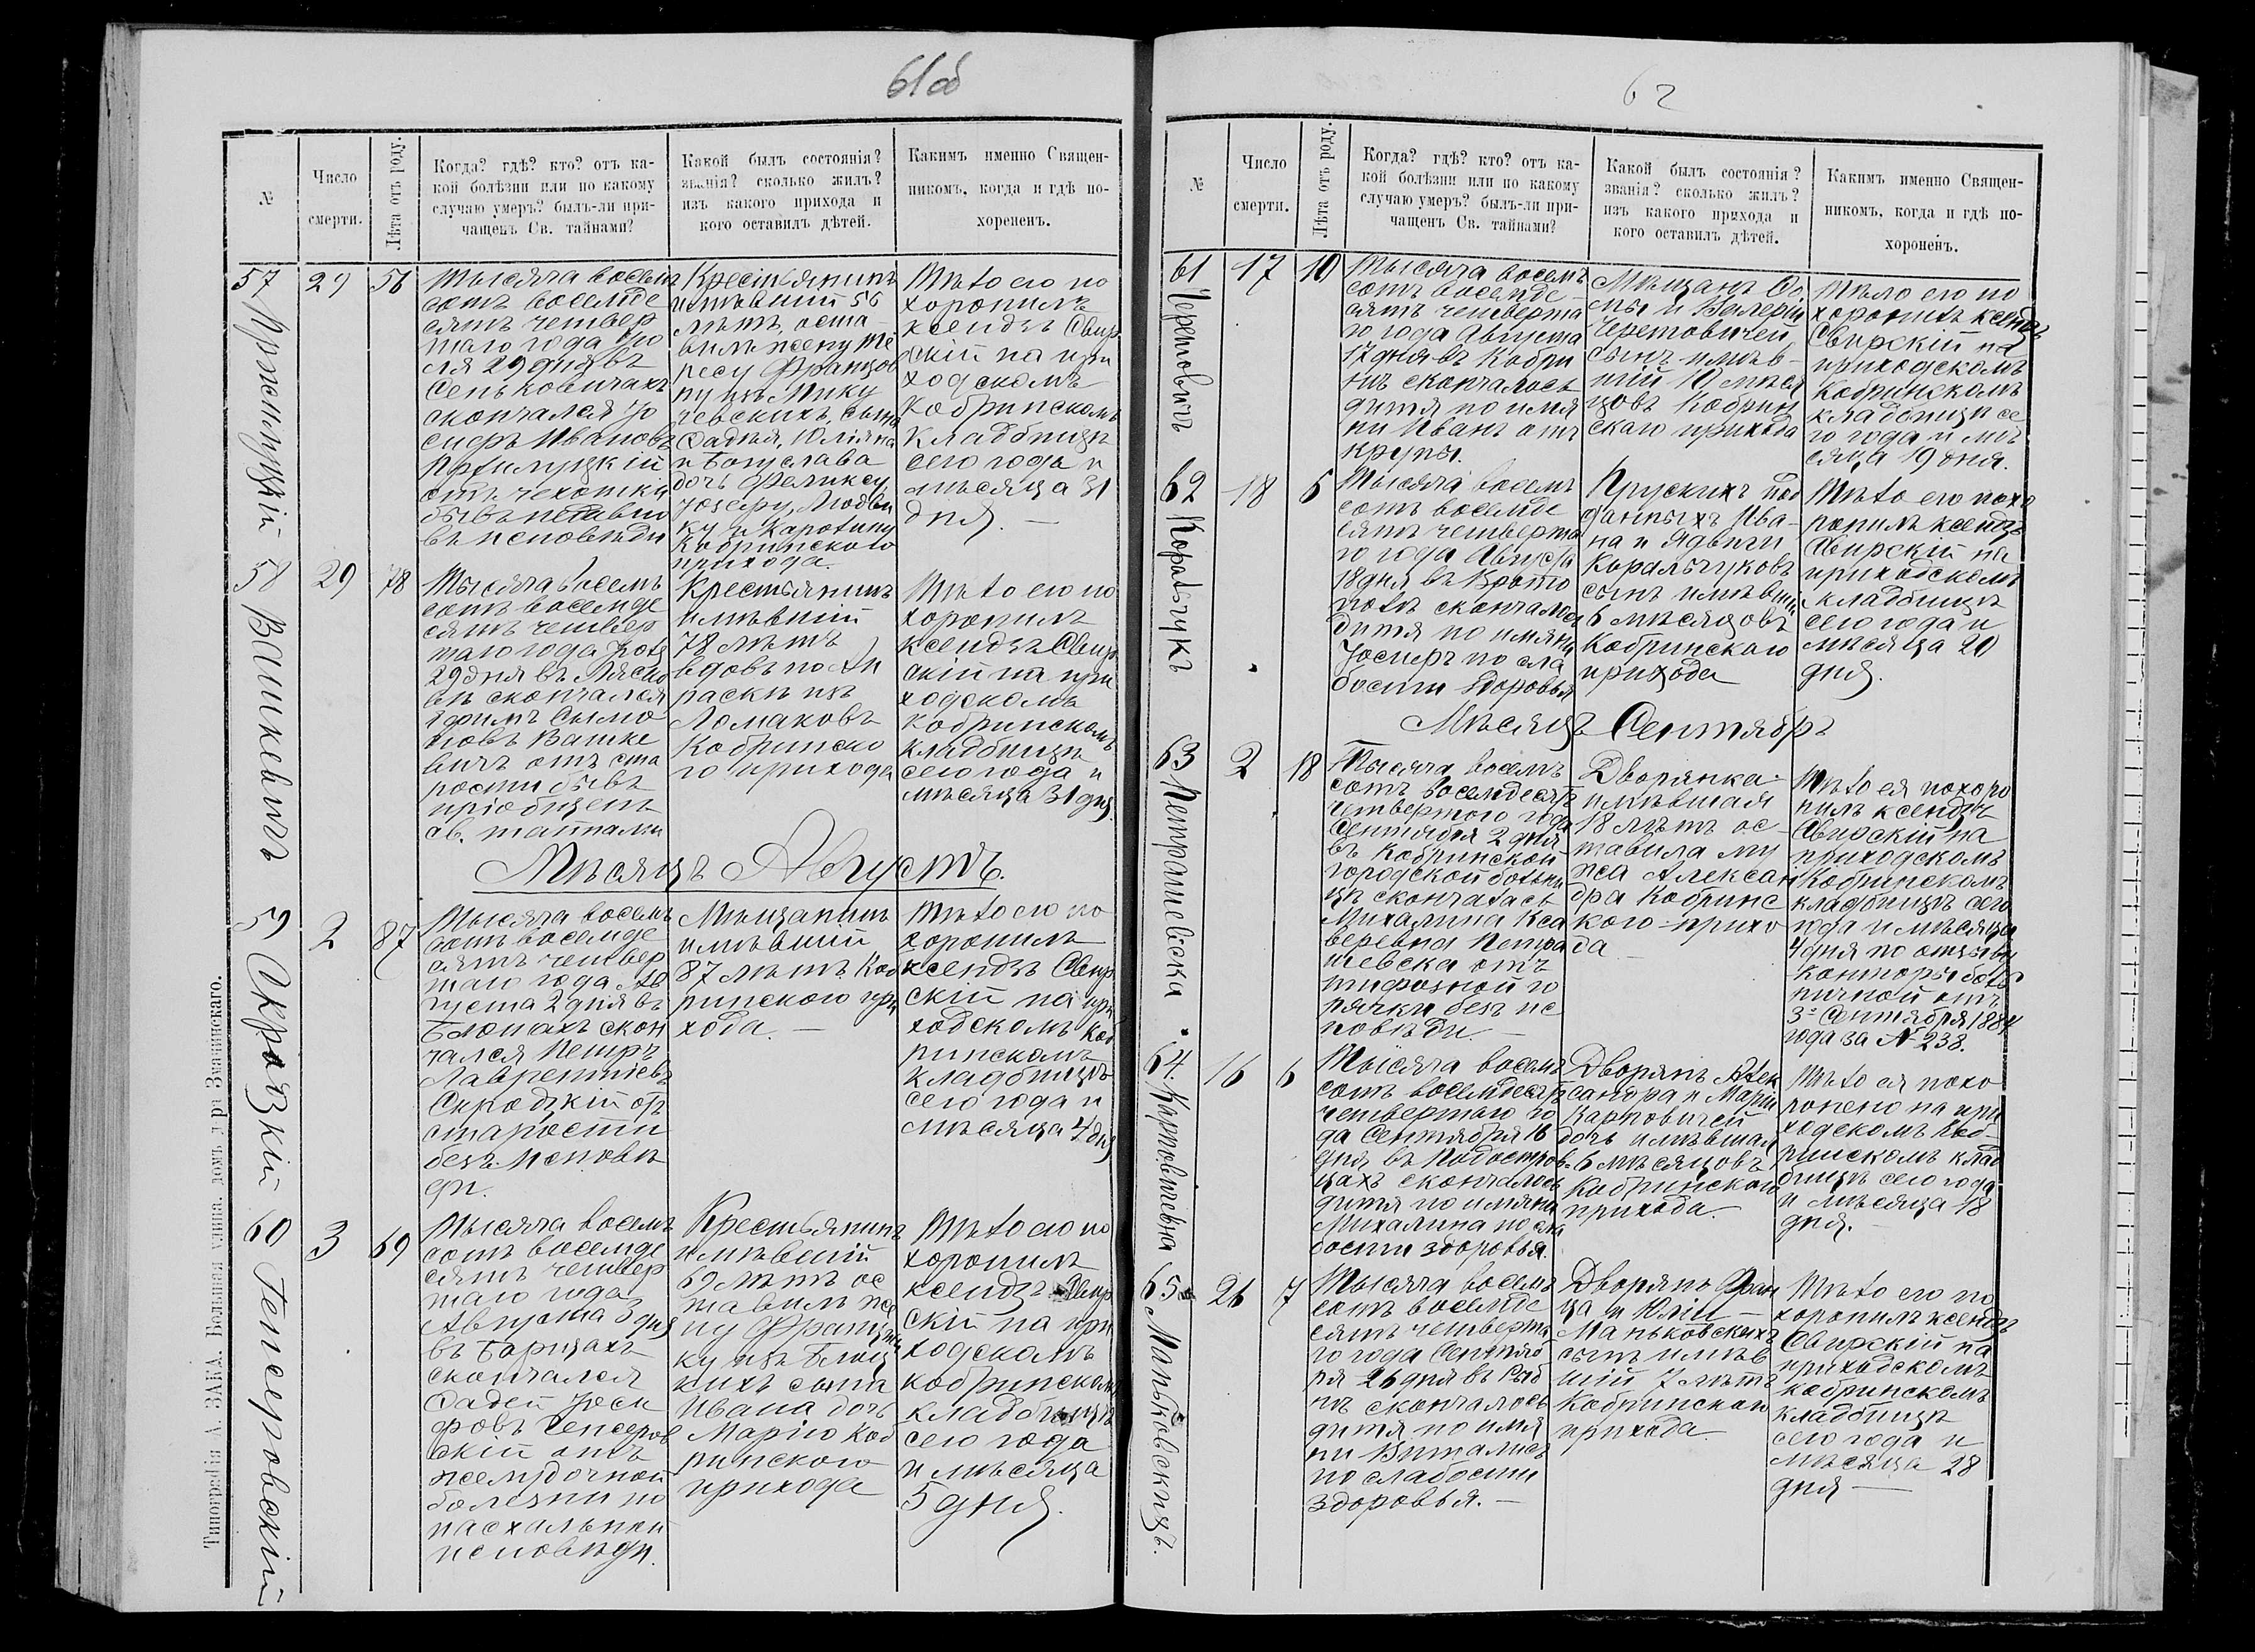 61об
№
Число
смерти.
Лѣта отъ роду.
Когда? гдѣ? кто? отъ ка-
кой болѣзни или по какому
случаю умеръ? былъ-ли при-
чащенъ Св. тайнами?
Какой былъ состоянія?
званія? сколько жилъ?
изъ какого прихода и
кого оставилъ дѣтей.
Какимъ именно Священ-
никомъ, когда и гдѣ по-
хороненъ.
57
29
56
Тысяча восем
сотъ восемде
сятъ четвер
таго года Ию
ля 29 дня въ
Сеньковичахъ
скончался Іо
сифъ Ивановъ
отъ чахотки
въ исповѣди
Крестьянинъ
имѣвшій 56
лѣтъ, оста
вилъ жену Те
ресу Францов
ну изъ Мику
чевскихъ, сына
Фадѣя, Юліяна
и Богуслава
дочь Феликсу
Юзефу, Людви
ку и Каролину
Кобринского
прихода.
Тѣло его по
хоронилъ
ксендзъ Свир
скій на при
ходскомъ
Кобринскомъ
кладбищѣ
сего года и
мѣсяца 31
дня. —
58 Вашкевичъ
29
78
Тысяча восемъ
сотъ восемде
сятъ четвер
таго года Июля
29 дня въ Ляско
вѣ скончался
Ефимъ Сымо
новъ Вашке
вичъ отъ ста
рости бывъ
пріобщенъ
св. тайнами
Крестьянинъ
имѣвший
78 лѣтъ
вдовъ по Па
раскѣ изъ
Ломаковъ
Кобринско
го прихода
Тѣло его по
хоронилъ
ксендзъ Свир
скій на при
ходскомъ
Кобринскомъ
кладбищѣ
сего года и
мѣсяца 31 дня
Мѣсяцъ Августъ.
59 Скродзкій
2
87
Тысяча восемъ
сотъ восемде
сятъ четвер
таго года Ав
густа 2 дня въ
скон
чался Петръ
Лаврентіевъ
Скродзкій отъ
старости
безъ исповѣ
ди.
Мѣщанинъ
имѣвший
87 лѣтъ Коб
ринского при
хода. —
Тѣло его по
хоронилъ
ксендзъ Свир
скій на при
ходскомъ Коб
ринскомъ
кладбищѣ
сего года и
мѣсяца 4 дня
60 Генсеровскій
3
69
Тысяча восемъ
сотъ восемде
сятъ четвер
таго года
Августа 3 дня
въ Борщахъ
скончался
Фадей Іоси
фовъ Генсеров
скій отъ
желудочной
болезни по
пасхальной
исповѣди.
Крестьянинъ
имѣвшій
69 лѣтъ ос
тавилъ же
ну Франциш
ку изъ Блоц
кихъ сына
Ивана дочь
Марію Коб
ринского
прихода
Тѣло его по
хоронилъ
ксендзъ Свир
скій на при
ходскомъ
Кобринскомъ
кладбищѣ
сего года
и мѣсяца
5 дня.
Типографія А. ЗАКА. Вольная улица, домъ д-ра Значинскаго.
62
№
Число
смерти.
Лѣта отъ роду.
Когда? гдѣ? кто? отъ ка-
кой болѣзни или по какому
случаю умеръ? былъ-ли при-
чащенъ Св. тайнами?
Какой былъ состоянія?
званія? сколько жилъ?
изъ какого прихода и
кого оставилъ дѣтей.
Какимъ именно Священ-
никомъ, когда и гдѣ по-
хороненъ.
61 Черетовичъ
17
10
Тысяча восемъ
сотъ восемде-
сятъ четверта
го года Августа
17 дня въ Кобри
нѣ скончалось
дитя по имя
ни Иванъ отъ
крупы.
Мѣщанъ
и Валеріи
Черетовичей
сынъ имѣв-
шій 10 мѣся
цовъ Кобрин
скаго прихода
Тѣло его по
хоронилъ ксендзъ
Свирскій на
приходскомъ
Кобринскомъ
кладбищи се
го года и мѣ
сяца 19 дня.
62 Коральчукъ
18
6
Тысяча восемъ
сотъ восемде
сятъ четверта
го года Августа
18 дня въ
скончалось
дитя по имяни
Іосифъ по сла
бости здоровья
Прускихъ под
данныхъ Ива-
на и Ядвиги
Коральчуковъ
сынъ имѣвшій
6 мѣсяцовъ
Кобринскаго
прихода
Тѣло его похо
ронилъ ксендзъ
Свирскій на
приходскомъ
кладбищѣ
сего года и
мѣсяца 20
дня.
Мѣсяцъ Сентябрь
63 Петрашевска
2
18
Тысяча восемъ
сотъ восемдесятъ
четвертого года
Сентября 2 дня
въ Кобринской
городской больни
цѣ скончалась
Михалина Кса
веревна Петра
шевска отъ
тифозной го
рячки безъ ис
повѣди. —
Дворянка
имѣвшая
18 лѣтъ ос-
тавила му
жа Алексан
дра Кобринс
кого прихо
да —
Тѣло ея похоро
нилъ ксендзъ
Свирскій на
приходскомъ
Кобринскомъ
кладбищѣ сего
года и мѣсяца
4 дня по отзыву
конторы боль
ничной отъ
3 Сентября 1884
года за № 238.
64. Карповичевна
16
6
Тысяча восемъ
сотъ восемдесятъ
четвертаго го
да Сентября 16
дня, въ Подостров-
цахъ скончалось
дитя по имяни
Михалина по сла
бости здоровья.
Дворянъ Алек
сандра и Маріи
Карповичей
дочь имѣвшая
6 мѣсяцовъ
Кобринского
прихода.
Тѣло ея похо
ронено на при
ходскомъ Коб-
ринскомъ клад
бищѣ сего года
и мѣсяца 18
дня. —
65 Маньковскихъ.
26
7
Тысяча восемъ
сотъ восемде
сятъ четверта
го года Сентяб
ря 26 дня въ
скончалось
дитя по имя
ни Виталисъ
по слабости
здоровья. —
Дворянъ Фран
ца и Юліи —
Маньковскихъ
сынъ имѣв
шій 7 лѣтъ
Кобринского
прихода
Тѣло его по
хоронилъ ксендзъ
Свирскій на
приходскомъ
Кобринскомъ
кладбищѣ
сего года и
мѣсяца 28
дня —